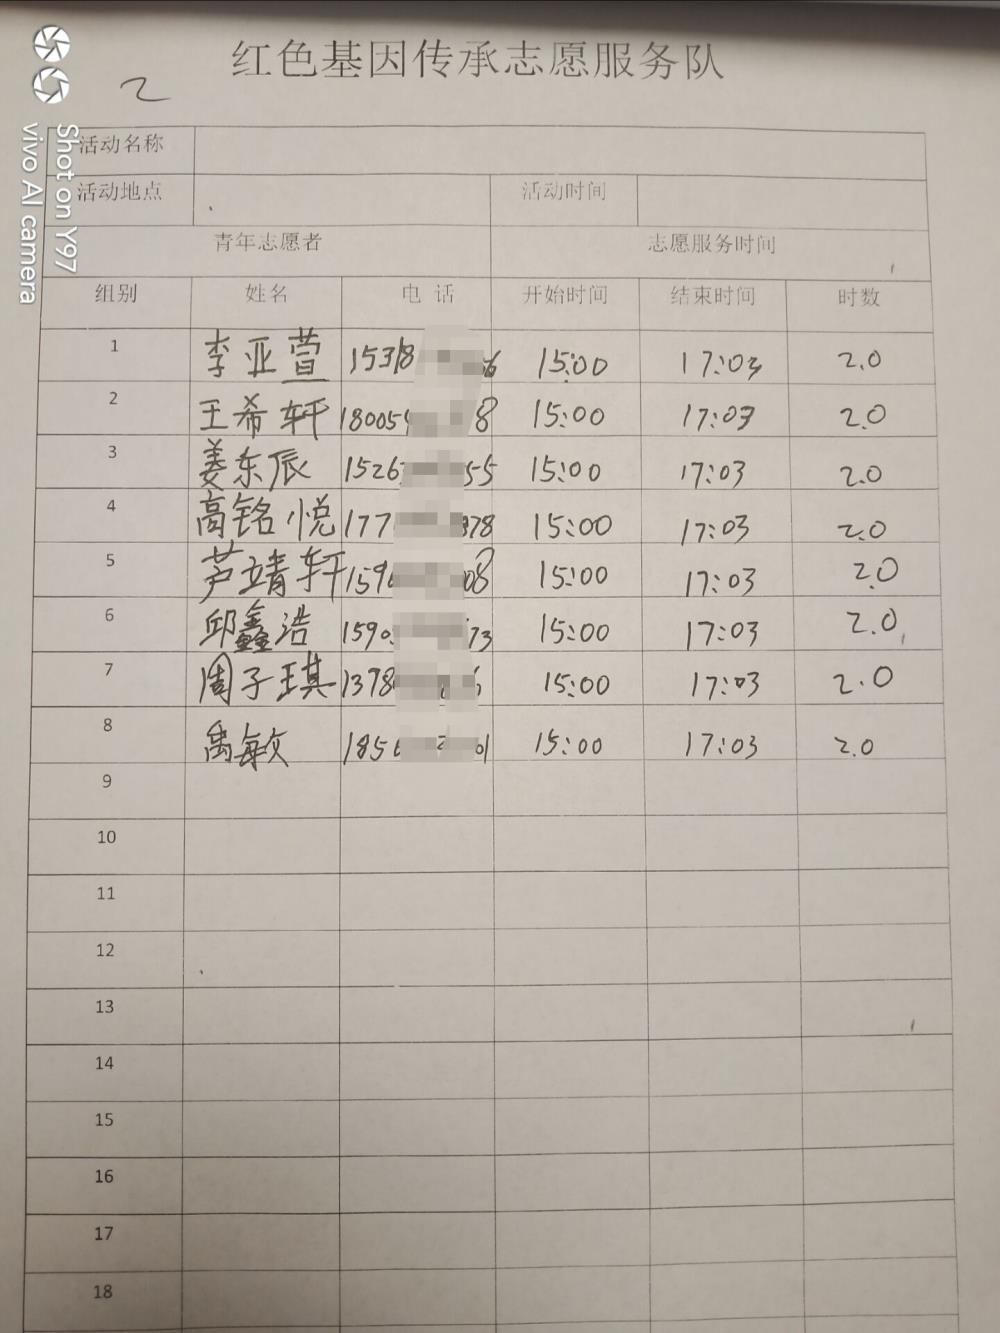 红色基因传承志愿服务队
2
活动名称
活动地点 活动时间
青年志愿者 志愿服务时间
组别 姓名 电 话 开始时间 结束时间 时数
1 李亚萱 15318 6 15:00 17:03 2.0
2 王希轩 18005 8 15:00 17:03 2.0
3 姜东辰 1526 55 15:00 17:03 2.0
4 高铭悦 177 978 15:00 17:03 2.0
5 芦靖轩 159 08 15:00 17:03 2.0
6 邱鑫浩 1590 73 15:00 17:03 2.0
7 周子琪 1378 15:00 17:03 2.0
8 禹敏 185 01 15:00 17:03 2.0
9
10
11
12
13
14
15
16
17
18
Shot on Y97
vivo AI camera